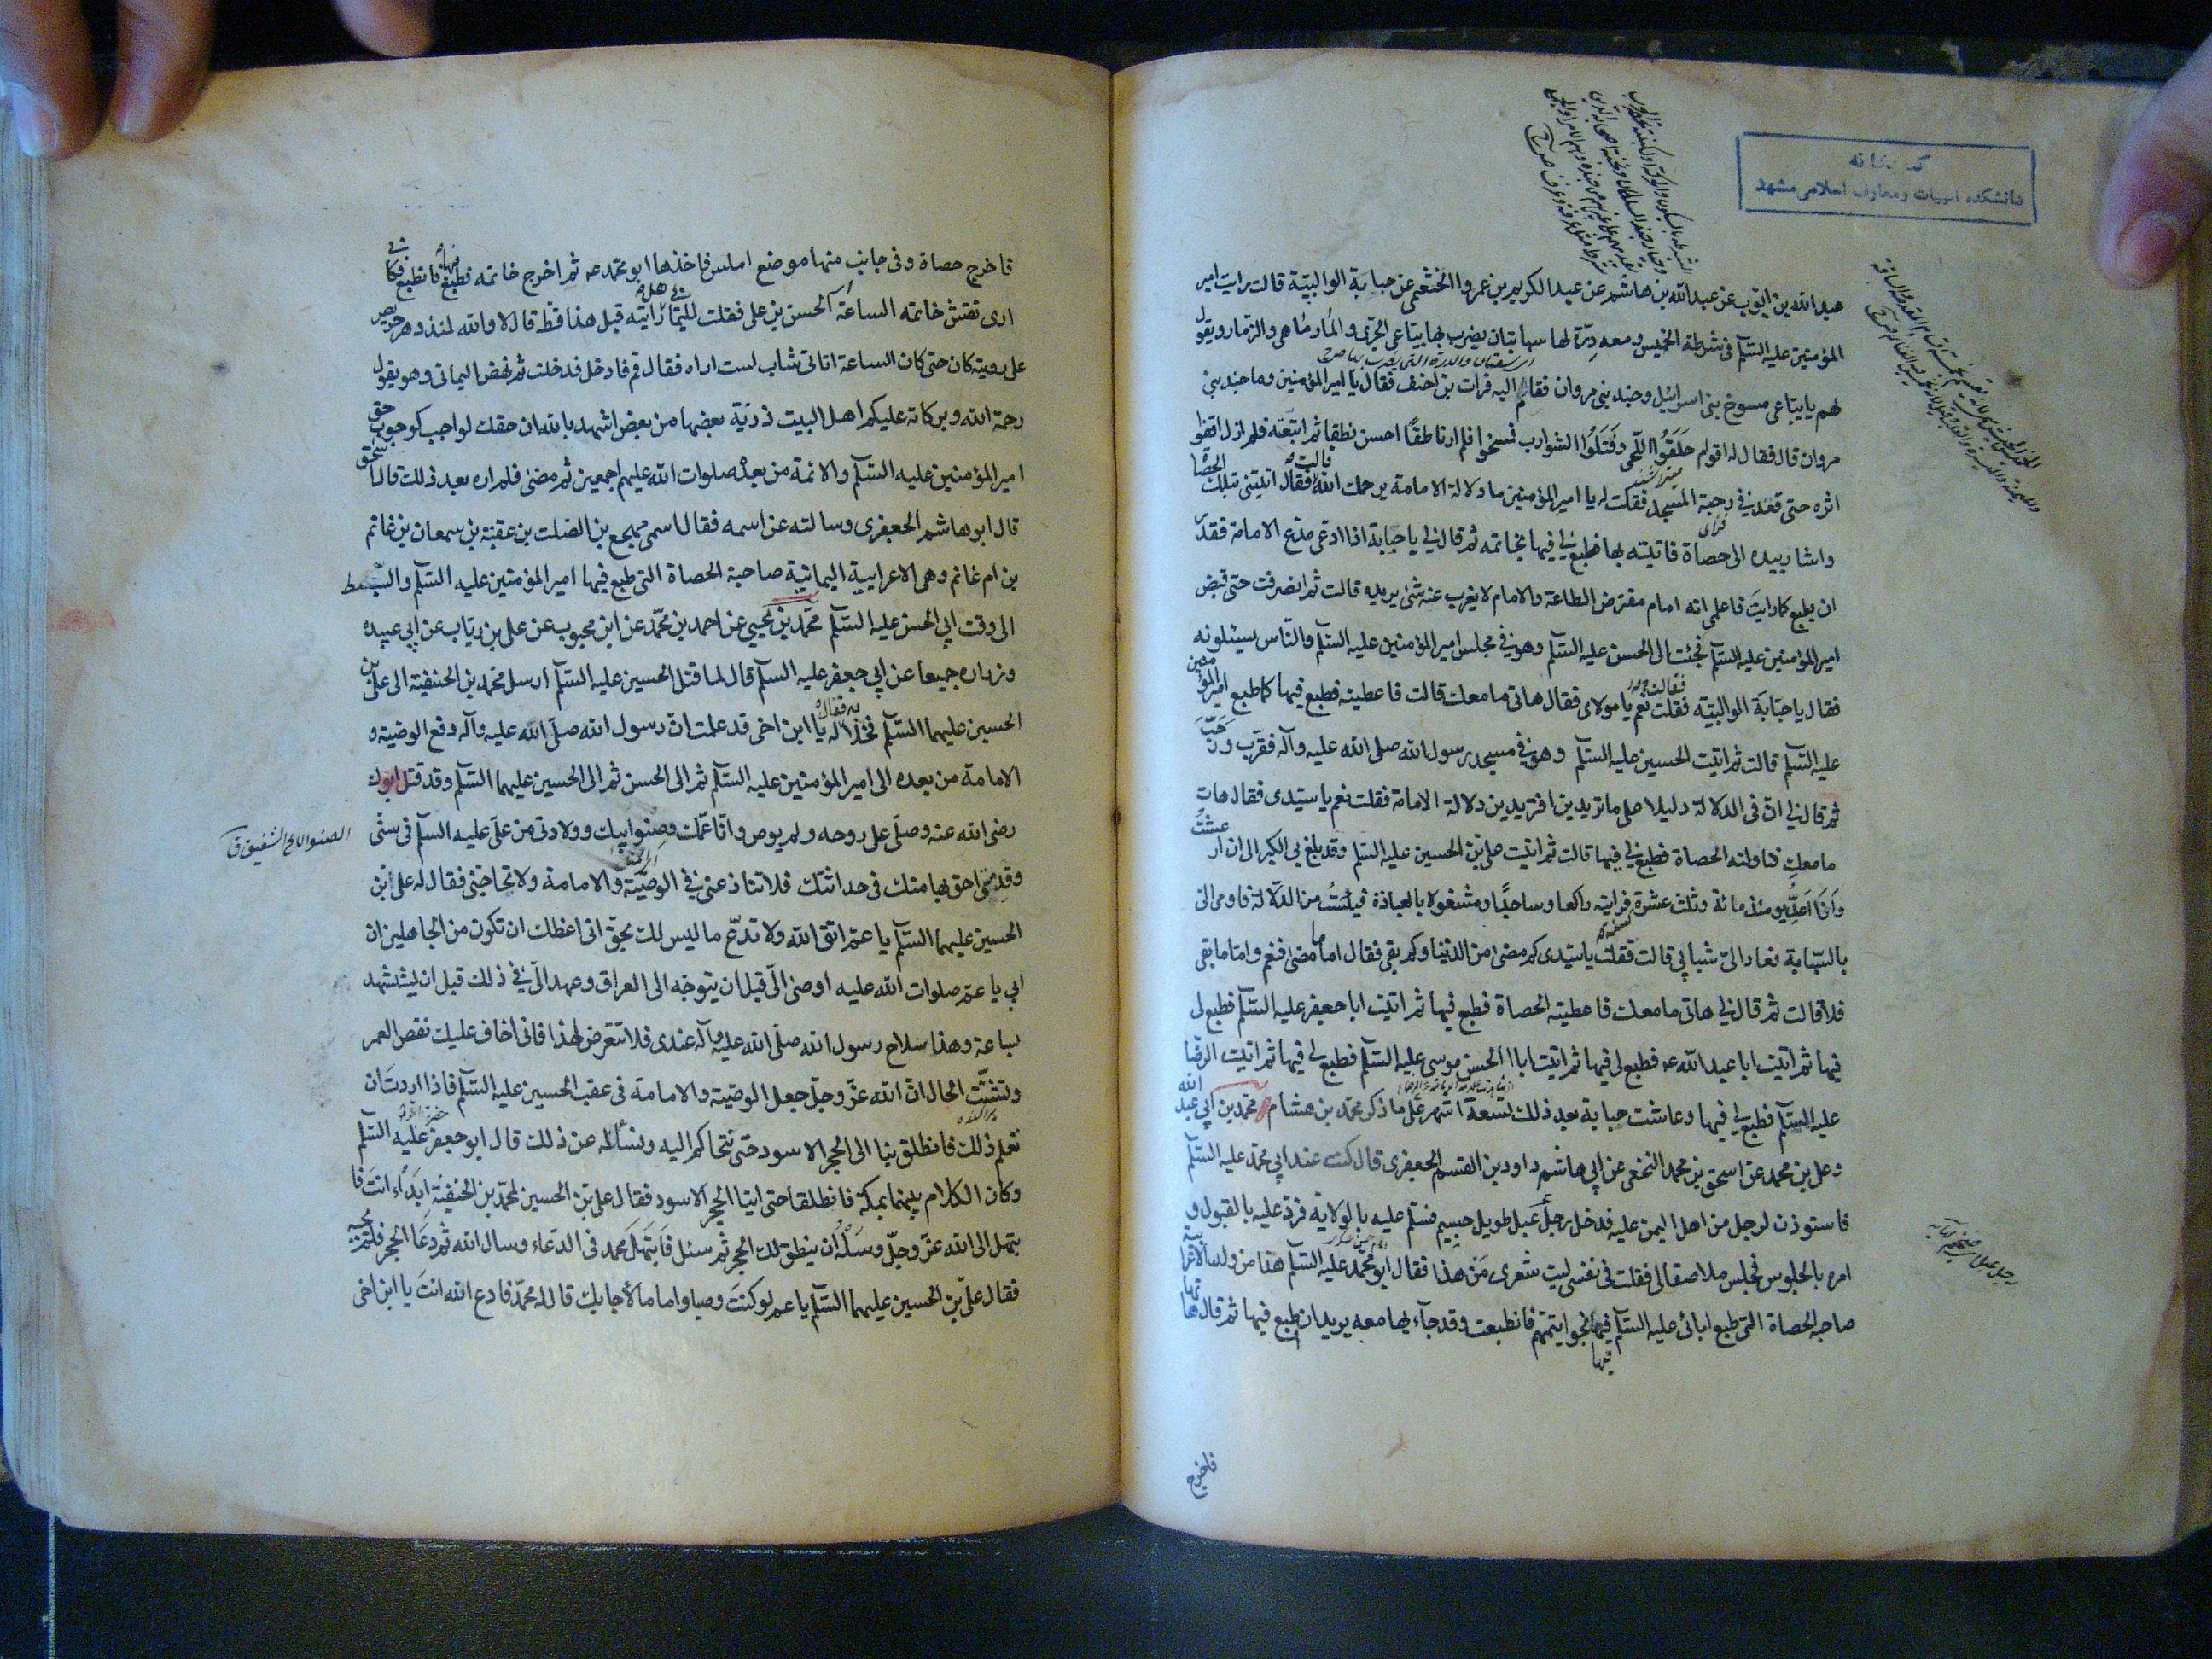 كتابخانه
دانشكده الهيات ومعارف اسلامى مشهد
عبد الله بن ايوب عن عبد الله بن هاشم عن عبد الكريم بن عمرو الخثعمى عن حبابة الوالبيّة قالت رايت امير
المؤمنين عليه السّلم فى شرطة الخميس ومعه دِرّة لها سبابتان يضرب بها بيّاعى الجرّى والمارماهى والزمار ويقول
لهم يا بيّاعى مسوخ بنى اسرائيل وجند بنى مروان فقام اليه فرات بن احنف فقال يا امير المؤمنين وما جند بنى
مروان قال فقال له اقوام حَلَقُوا اللّحى وفَتَلُوا الشوارب فمسخوا فلم ار ناطقًا احسن نطقا ثم اتبعته فلم ازل اقفوا
اثره حتى قعد فى رحبة المسجد فقلت له يا امير المؤمنين ما دلالة الامامة يرحمك الله قالت فقال ائتينى بتلك الحصاة
واشار بيده الى حصاة فاتيته بها فطبع لى فيها بخاتمه ثم قال لى يا حبابة اذا ادّعى مدّع الامامة فقدر
ان يطبع كما رايتَ فاعلمى انه امام مفترض الطاعة والامام لا يعزب عنه شئ يريده قالت ثم انصرفت حتى قبض
امير المؤمنين عليه السّلم فجئت الى الحسن عليه السّلم وهو فى مجلس امير المؤمنين عليه السّلم والنّاس يسئلونه
فقال يا حبّابة الوالبيّه فقلت نعم يا مولاى فقال هاتى ما معك قالت فاعطيته فطبع فيها كما طبع امير المؤمنين
عليه السّلم قالت ثم اتيت الحسين عليه السّلم وهو فى مسجد رسول الله صلى الله عليه وآله فقرّب ورَحَّبَ
ثم قال لى انّ فى الدلالة دليلا على ما تريدين افتريدين دلالة الامامة فقلت نعم يا سيّدى فقال هات
ما معكِ فناولته الحصاة فطبع لى فيها قالت ثم اتيت على بن الحسين عليه السّلم وقد بلغ بى الكبر الى ان ارعشتُ
وَاَنَا اَعُدُّ يومئذ مائة وثلث عشرة فرايته راكعا وساجدًا ومشغولا بالعبادة فيئستُ من الدلالة فاومى الىّ
بالسّبّابة فعاد الىّ شبابى قالت فقلت يا سيّدى كم مضى من الدّنيا وكم بقى فقال اما ما مضى فنعم وامّا ما بقى
فلا قالت ثم قال لى هاتى ما معك فاعطيته الحصاة فطبع فيها ثم اتيت ابا جعفر عليه السّلم فطبع لى
فيها ثم اتيت ابا عبد الله عه فطبع لى فيها ثم اتيت ابا الحسن موسى عليه السّلم فطبع لى فيها ثم اتيت الرضا
عليه السّلم فطبع لى فيها وعاشت حبابة بعد ذلك تسعة اشهر على ما ذكر محمّد بن هشام محمّد بن ابى عبد الله
وعلى بن محمد عن اسحق بن محمد النخعى عن ابى هاشم داود بن القسم الجعفرى قال كنت عند ابى محمّد عليه السّلم
فاستوذن لرجل من اهل اليمن عليه فدخل رجل عَبل طويل جسيم فسلّم عليه بالولاية فردّ عليه بالقبول و
امره بالجلوس فجلس ملاصقا لى فقلت فى نفسى ليت شعرى مَن هذا فقال ابو محمّد عليه السّلم هذا من ولد الاعرابية
صاحبة الحصاة التى طبع ابائى عليه السّلم فيها بخواتيمهم فانطبعت وقد جآء بها معه يريد ان اطبع فيها ثم قال هاتها
رجل عبل اى ضخيم
فاخرج
فاخرج حصاة وفى جانب منها موضع املس فاخذها ابو محمّد عه ثم اخرج خاتمه فطبع فيها فانطبع فكانى
ارى نقش خاتمه الساعة الحسن بن على فقلت لليمانى رايته قبل هذا قط قال لا والله لمنذ دهر حريص
على رويته كان حتى كان الساعة اتانى شاب لست اراه فقال قم فادخل فدخلت ثم نهض اليمانى وهو يقول
رحمة الله وبركاته عليكم اهل البيت ذريّة بعضها من بعض اشهد بالله ان حقك لواجب كوجوب حق
امير المؤمنين عليه السّلم والائمة من بعده صلوات الله عليهم اجمعين ثم مضى فلم اره بعد ذلك قال اسحق
قال ابو هاشم الجعفرى وسالته عن اسمه فقال اسمى مهجع بن الصّلت بن عقبة بن سمعان بن غانم
بن ام غانم وهى الاعرابيية اليمانية صاحبة الحصاة التى طبع فيها امير المؤمنين عليه السّلم والسّبط
الى وقت ابى الحسن عليه السّلم محمّد بن يحيى عن احمد بن محمّد عن ابن محبوب عن على بن رئاب عن ابى عبيده
وزراره جميعا عن ابى جعفر عليه السّلم قال لما قتل الحسين عليه السّلم ارسل محمّد بن الحنفية الى على بن
الحسين عليهما السّلم فخلا به فقال له يا ابن اخى قد علمت انّ رسول الله صلّى الله عليه وآله دفع الوصيّة و
الامامة من بعده الى امير المؤمنين عليه السّلم ثم الى الحسن ثم الى الحسين عليهما السّلم وقد قتل ابوك
رضى الله عنه وصلّى على روحه ولم يوص وانا عمّك وصِنو ابيك وولادتى من علىّ عليه السّلم فى سنّى
الصنو الاخ الشقيق ق
وقدمتى احق بها منك فى حداثتك فلا تنازعنى فى الوصيّة والامامة ولا تحاجنى فقال له على بن
الحسين عليهما السّلم يا عم اتق الله ولا تدّع ما ليس لك بحق انى اعظك ان تكون من الجاهلين ان
ابى يا عم صلوات الله عليه اوصى الىّ قبل ان يتوجّه الى العراق وعهد الىّ فى ذلك قبل ان يستشهد
بساعة وهذا سلاح رسول الله صلّى الله عليه وآله عندى فلا تتعرض لهذا فانى اخاف عليك نقص العمر
وتشتّت الحال انّ الله عزّ وجلّ جعل الوصيّة والامامة فى عقب الحسين عليه السّلم فاذا اردتَ ان
تعلم ذلك فانطلق بنا الى الحجر الاسود حتى نتحاكم اليه ونسأله عن ذلك قال ابو جعفر عليه السّلم
وكان الكلام بينهما بمكّة فانطلقا حتى اتيا الحجر الاسود فقال على بن الحسين لمحمّد بن الحنفية ابدَأ انتَ فا
بتهل الى الله عزّ وجلّ وسَلْهُ ان ينطق لك الحجر ثم سئل فابتهل محمد فى الدعاء وسال الله ثم دعا الحجر فلم يجبه
فقال علىّ بن الحسين عليهما السّلم يا عم لو كنتَ وصيا واماما لأجابك قال له محمّد فادع الله انتَ يا ابن اخى